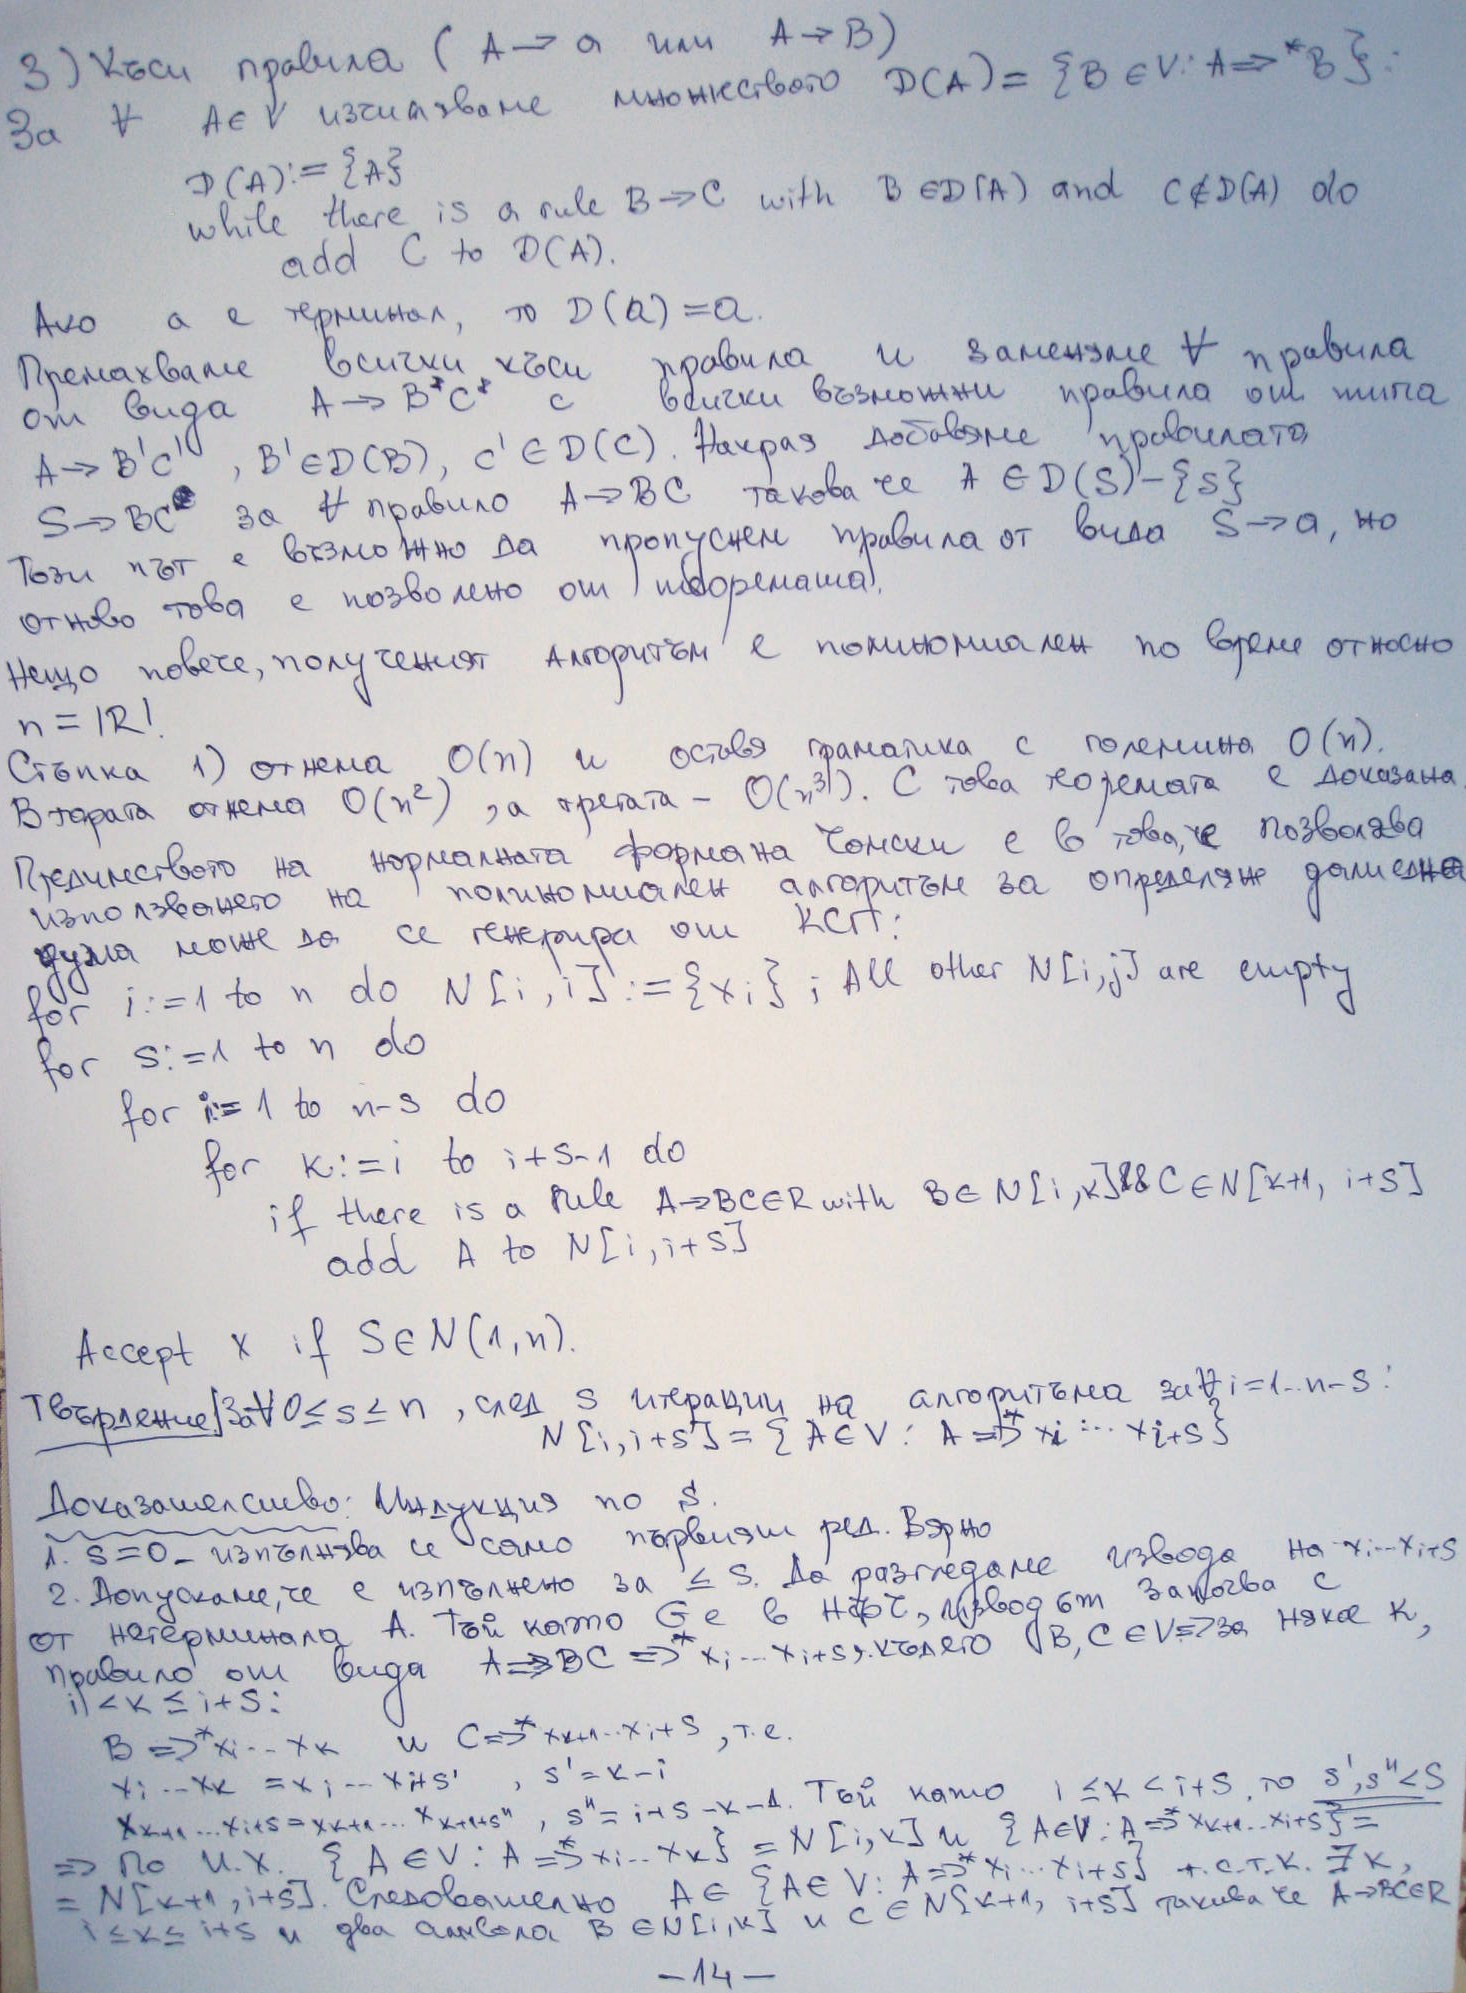 3) Къси правила ( A → a или A → B)
За ∀ A ∈ V изчисляваме множеството D(A) = {B ∈ V: A ⇒* B}:
D(A) := {A}
while there is a rule B → C with B ∈ D(A) and C ∉ D(A) do
add C to D(A).
Ако a е терминал, то D(a) = a.
Премахваме всички къси правила и заменяме ∀ правила
от вида A → B*C* с всички възможни правила от типа
A → B'C' , B' ∈ D(B), C' ∈ D(C). Накрая добавяме правилата
S → BC за ∀ правило A → BC такова че A ∈ D(S) - {S}
Този път е възможно да пропуснем правила от вида S → a, но
отново това е позволено от теоремата.
Нещо повече, полученият алгоритъм е полиномиален по време относно
n = |R|.
Стъпка 1) отнема O(n) и оставя граматика с големина O(n).
Втората отнема O(n²), а третата - O(n³). С това теоремата е доказана.
Предимството на нормалната форма на Чомски е в това, че позволява
използването на полиномиален алгоритъм за определяне дали една
дума може да се генерира от КСГ:
for i := 1 to n do N[i, i] := {xi} ; All other N[i,j] are empty
for s := 1 to n do
for i := 1 to n-s do
for k := i to i+s-1 do
if there is a rule A → BC ∈ R with B ∈ N[i,k] && C ∈ N[k+1, i+s]
add A to N[i, i+s]
Accept x if S ∈ N(1,n).
Твърдение] За ∀ 0 ≤ s ≤ n , след s итерации на алгоритъма за ∀ i = 1..n-s :
N[i, i+s] = {A ∈ V : A ⇒* xi ... xi+s}
Доказателство: Индукция по s.
1. s = 0 - изпълнява се само първият ред. Вярно
2. Допускаме, че е изпълнено за ≤ s. Да разгледаме извода на xi...xi+s
от нетерминала A. Той като G е в НФЧ, извод от започва с
правило от вида A ⇒ BC ⇒* xi...xi+s, където B, C ∈ V ⇒ за някое k,
i < k ≤ i+s:
B ⇒* xi ... xk и C ⇒* xk+1...xi+s , т.е.
xi ... xk = xi ... xi+s' , s' = k-i
xk+1...xi+s = xk+1... xk+1+s" , s" = i+s-k-1. Той като i ≤ k < i+s, то s', s" < s
⇒ По И.Х. {A ∈ V : A ⇒* xi...xk} = N[i,k] и {A ∈ V : A ⇒* xk+1...xi+s} =
= N[k+1, i+s]. Следователно A ∈ {A ∈ V: A ⇒* xi...xi+s} т.с.т.к. ∃ k,
i ≤ k ≤ i+s и два символа B ∈ N[i,k] и C ∈ N[k+1, i+s] такива че A → BC ∈ R
-14-